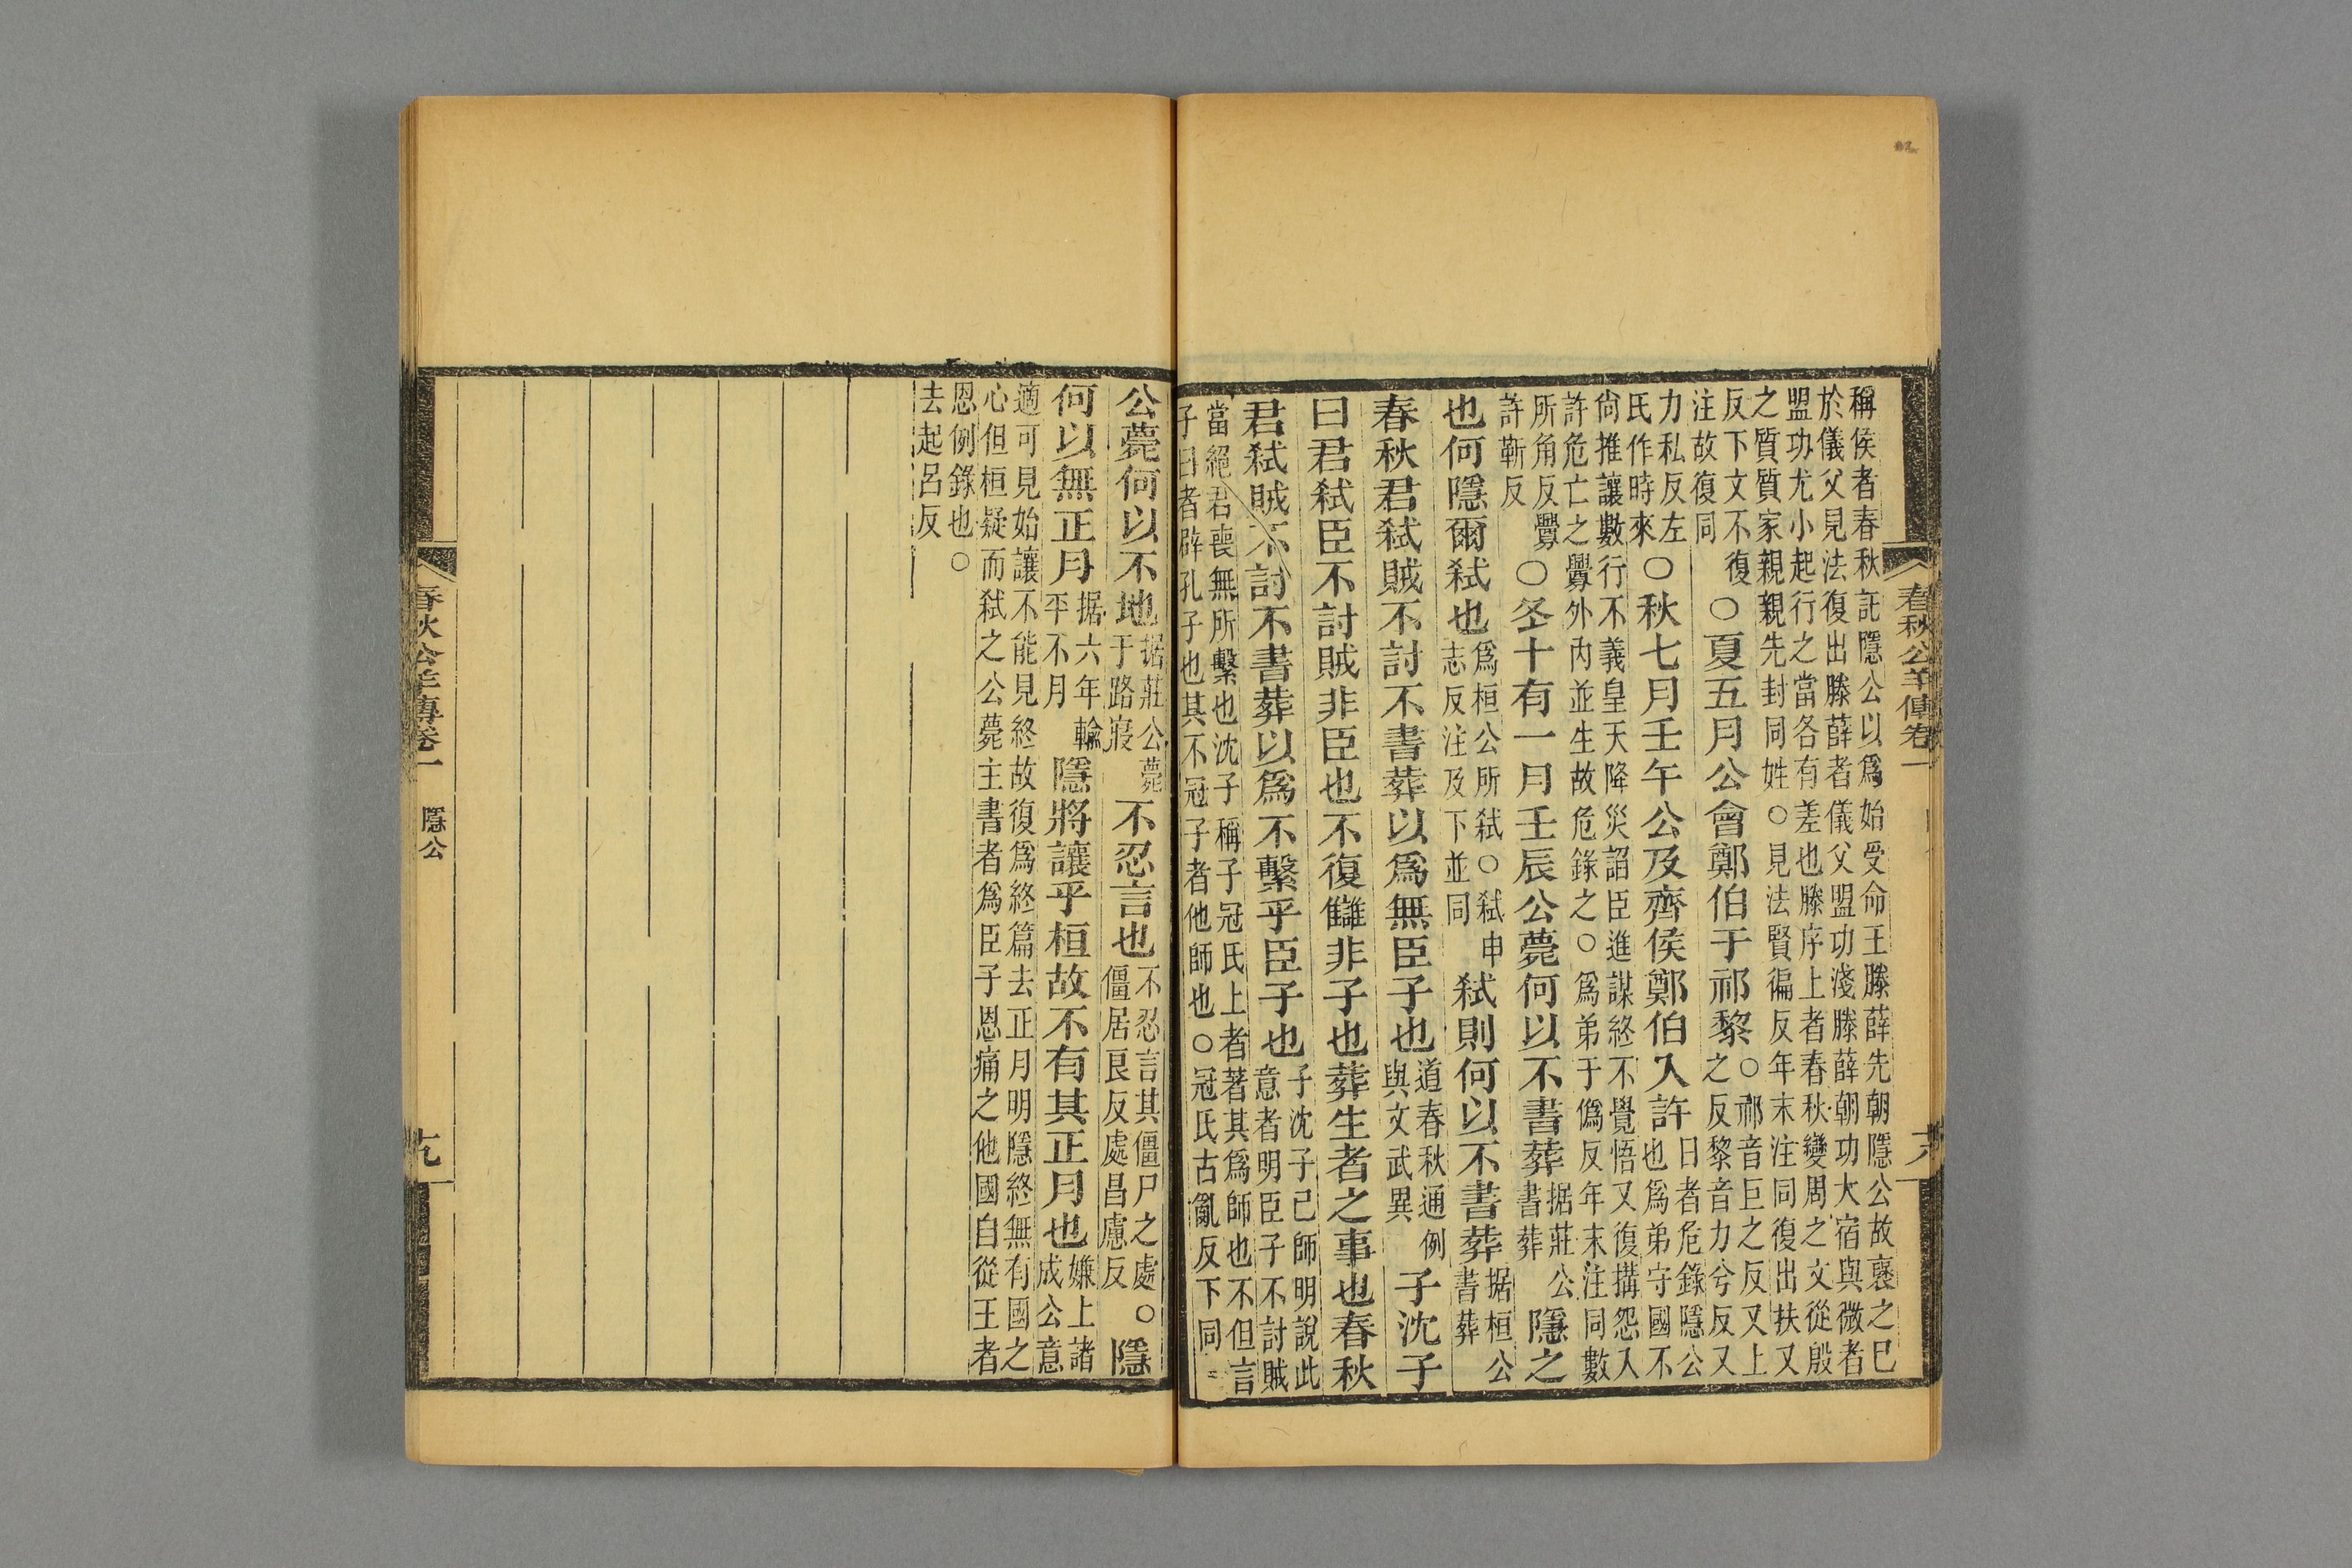 稱侯者春秋託隱公以爲始受命王滕薛先朝隱公故襃之已
於儀父見法復出滕薛者儀父盟功淺滕薛朝功大宿與微者
盟功尤小起行之當各有差也滕序上者春秋變周之文從殷
之質質家親親先封同姓○見法賢徧反年末注同復出扶又
反下文不復
注故復同
○夏五月公會鄭伯于祁黎
○祁音巨之反又上
之反黎音力兮反又
力私反左
氏作時來
○秋七月壬午公及齊侯鄭伯入許
日者危錄隱公
也爲弟守國不
尙推讓數行不義皇天降災諂臣進謀終不覺悟又復搆怨入
許危亡之釁外內並生故危錄之○爲弟于僞反年末注同數
所角反釁
許靳反
○冬十有一月壬辰公薨何以不書葬
据莊公
書葬
隱之
也何隱爾弑也
爲桓公所弑○弑申
志反注及下並同
弑則何以不書葬
据桓公
書葬
春秋君弑賊不討不書葬以爲無臣子也
道春秋通例
與文武異
子沈子
曰君弑臣不討賊非臣也不復讎非子也葬生者之事也春秋
君弑賊不討不書葬以爲不繫乎臣子也
子沈子己師明說此
意者明臣子不討賊
當絕君喪無所繫也沈子稱子冠氏上者著其爲師也不但言
子曰者辟孔子也其不冠子者他師也○冠氏古亂反下同
春秋公羊傳卷一
公薨何以不地
据莊公薨
于路寢
不忍言也
不忍言其僵尸之處○
僵居良反處昌慮反
隱
何以無正月
据六年輸
平不月
隱將讓乎桓故不有其正月也
嫌上諸
成公意
適可見始讓不能見終故復爲終篇去正月明隱終無有國之
心但桓疑而弑之公薨主書者爲臣子恩痛之他國自從王者
恩例錄也○
去起呂反
春秋公羊傳卷一
隱公
十九